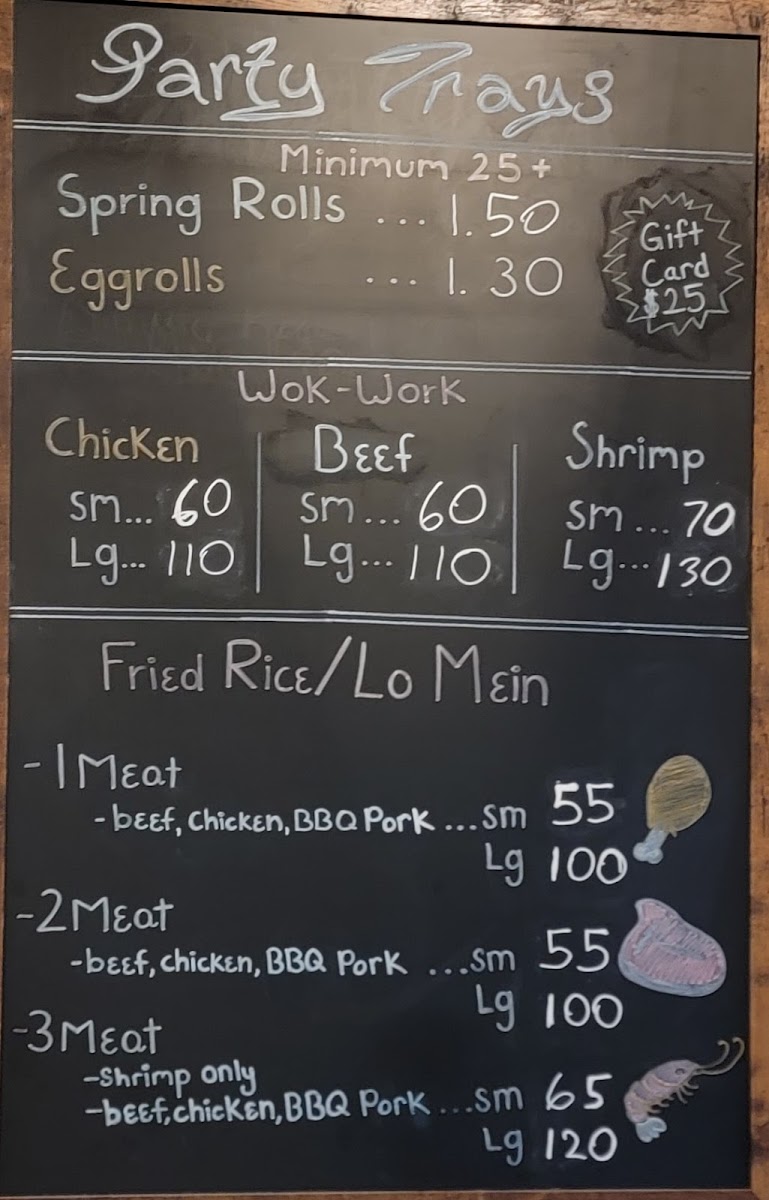 Party Trays
Minimum 25+
Spring Rolls ... 1.50
Eggrolls ... 1.30
Gift
Card
$25
Wok-Work
Chicken
Sm... 60
Lg... 110
Beef
Sm... 60
Lg... 110
Shrimp
Sm... 70
Lg... 130
Fried Rice/Lo Mein
-1 Meat
-beef, Chicken, BBQ Pork ...Sm 55
Lg 100
-2 Meat
-beef, chicken, BBQ Pork ...Sm 55
Lg 100
-3 Meat
-Shrimp only
-beef, chicken, BBQ Pork ...Sm 65
Lg 120